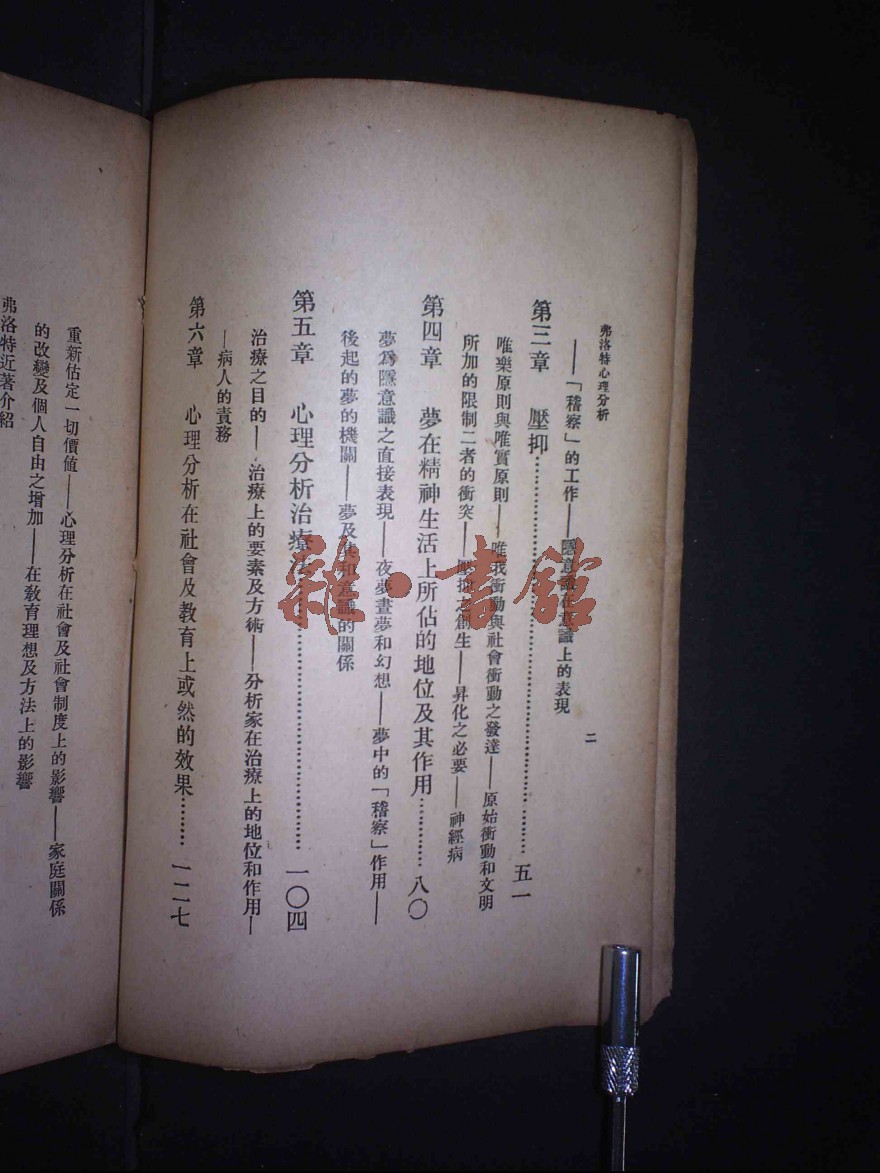 弗洛特心理分析
二
——「稽察」的工作——隱意識在意識上的表現
第三章 壓抑…………五一
唯樂原則與唯實原則——唯我衝動與社會衝動之發達——原始衝動和文明
所加的限制二者的衝突——壓抑之創生——昇化之必要——神經病
第四章 夢在精神生活上所佔的地位及其作用…………八〇
夢爲隱意識之直接表現——夜夢晝夢和幻想——夢中的「稽察」作用——
後起的夢的機關——夢及其和意識的關係
第五章 心理分析治療法…………一〇四
治療之目的——治療上的要素及方術——分析家在治療上的地位和作用—
—病人的責務
第六章 心理分析在社會及教育上或然的效果………一二七
重新估定一切價値——心理分析在社會及社會制度上的影響——家庭關係
的改變及個人自由之增加——在敎育理想及方法上的影響
弗洛特近著介紹
雜·書館